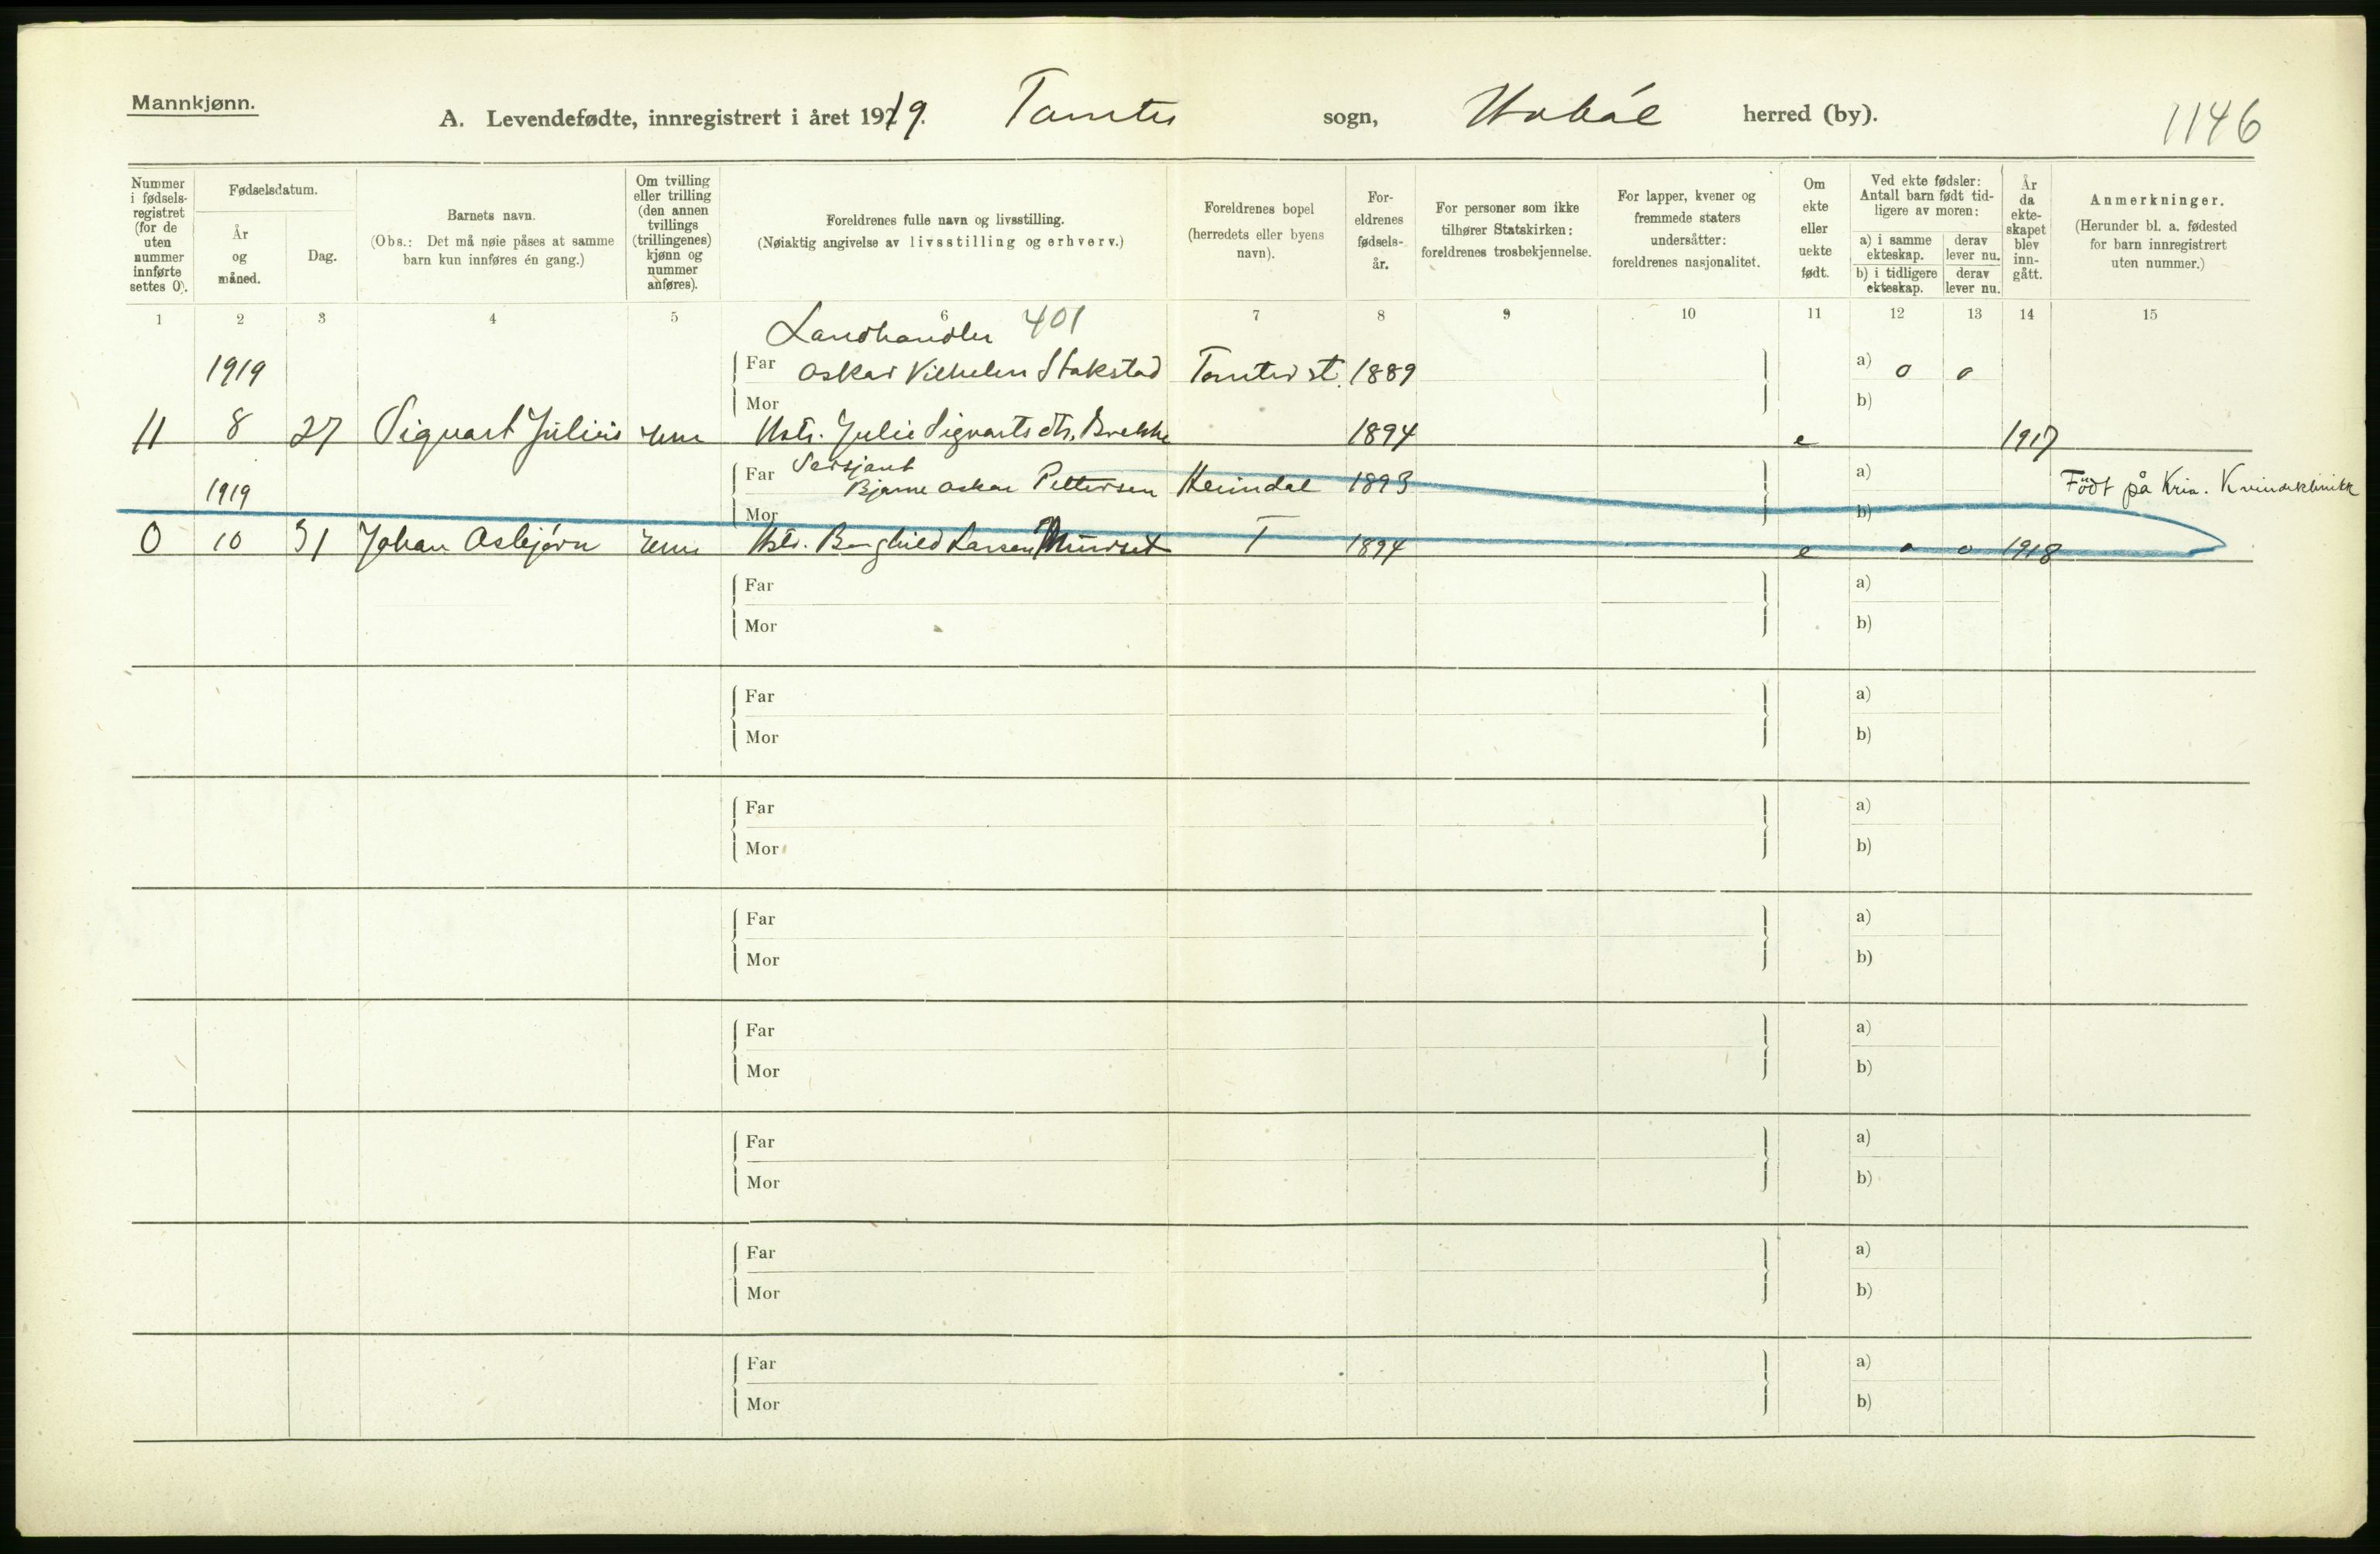 Mannkjønn.
A. Levendefødte, innregistrert i året 1919. Tomter sogn, Hobøl herred (by). 1146
Nummer i fødselsregistret (for de uten nummer innførte settes 0).
Fødselsdatum.
År og måned.
Dag.
Barnets navn.
(Obs.: Det må nøie påses at samme barn kun innføres én gang.)
Om tvilling eller trilling (den annen tvillings (trillingenes) kjønn og nummer anføres).
Foreldrenes fulle navn og livsstilling.
(Nøiaktig angivelse av livsstilling og erhverv.)
Foreldrenes bopel (herredets eller byens navn).
Foreldrenes fødselsår.
For personer som ikke tilhører Statskirken: foreldrenes trosbekjennelse.
For lapper, kvener og fremmede staters undersåtter: foreldrenes nasjonalitet.
Om ekte eller uekte født.
Ved ekte fødsler: Antall barn født tidligere av moren:
a) i samme ekteskap. derav lever nu.
b) i tidligere ekteskap. derav lever nu.
År da ekteskapet blev inngått.
Anmerkninger.
(Herunder bl. a. fødested for barn innregistrert uten nummer.)
1 2 3 4 5 6 7 8 9 10 11 12 13 14 15
Landhandler 401
1919 Far Oskar Vilhelm Stakstad Tomter st. 1889 a) 0 0
Mor b)
11 8 27 Sigvart Julius Hstr. Julie Sigvartsdtr. Brekke 1894 e 1917
Sersjant
1919 Far Bjarne Oskar Pettersen 1893 a) Født på Kria. Kvindeklinikk
Mor b)
0 10 31 Johan Asbjørn Hstr. Borghild Larsen T 1894 e 0 0 1918
Far a)
Mor b)
Far a)
Mor b)
Far a)
Mor b)
Far a)
Mor b)
Far a)
Mor b)
Far a)
Mor b)
Far a)
Mor b)
Far a)
Mor b)